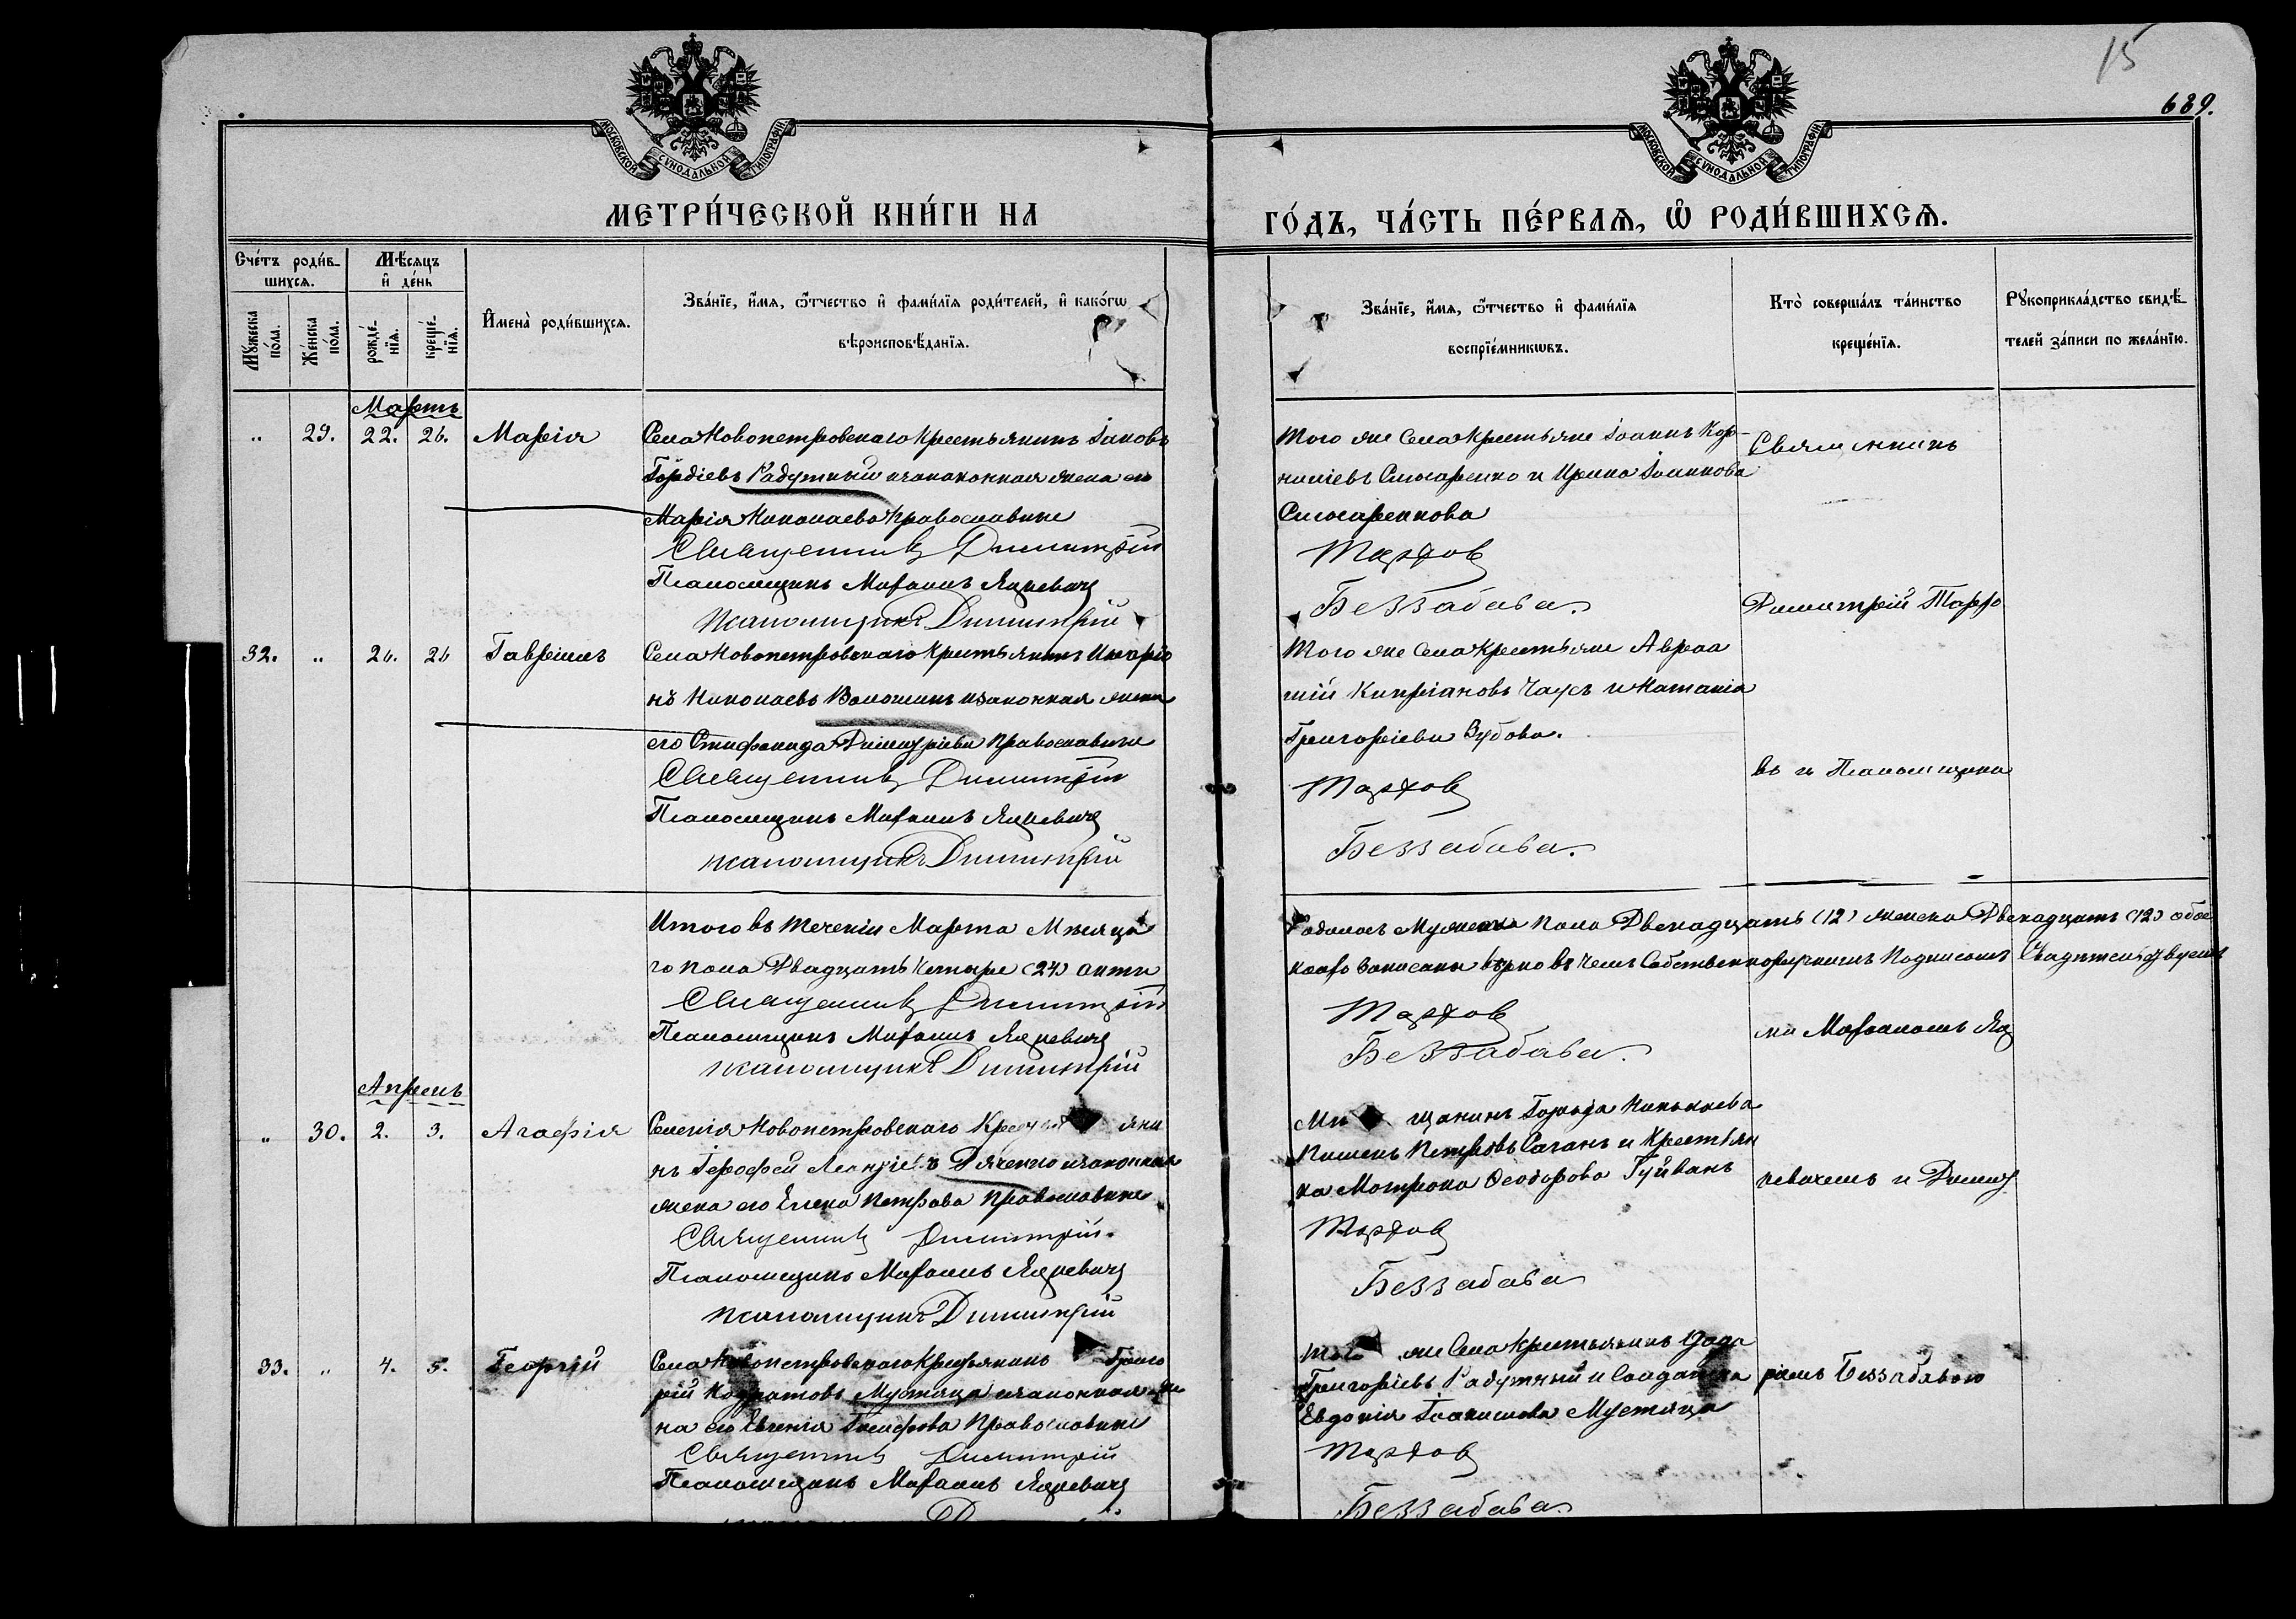 15
689.
МОСКОВСКОЙ СѴНОДАЛЬНОЙ ТИПОГРАФІИ
МОСКОВСКОЙ СѴНОДАЛЬНОЙ ТИПОГРАФІИ
МЕТРИ́ЧЕСКОЙ КНИ́ГИ НА
ГО́ДЪ, ЧА́СТЬ ПЕ́РВАѦ, Ѡ҆ РОДИ́ВШИХСѦ.
Сче́тъ роди́в-
шихсѧ.
Мѣ́сѧцъ
и҆ де́нь
Мꙋ́жеска
по́ла.
Же́нска
по́ла.
рожде́-
нїѧ.
креще́-
нїѧ.
И҆мена̀ роди́вшихсѧ.
Зва́нїе, и҆́мѧ, ѻ҆́тчество и҆ фамѝлїѧ роди́телей, и҆ како́гѡ
вѣроисповѣ́данїѧ.
Зва́нїе, и҆́мѧ, ѻ҆́тчество и҆ фами́лїѧ
воспрїе́мникѡвъ.
Кто̀ соверша́лъ та́инство
креще́нїѧ.
Рꙋкоприкла́дство свидѣ́-
телей за́писи по жела́нїю.
Мартъ
„ 29. 22. 26. Марія
Села Новопетровскаго крестьянинъ Іаковъ
Гордіевъ Радутный и законная жена его
Марія Николаева православные
Священникъ Димитрій
Псаломщикъ Михаилъ Яцкевичъ
Псаломщикъ Димитрій
Того же Села Крестьяне Іоаннъ Кор-
ниліевъ Слюсаренко и Ирина Іоаннова
Слюсаренкова
Тарховъ
Беззабава.
Священникъ
Димитрій Тархо
въ и Псаломщика
32. „ 26. 26 Гавріилъ
Села Новопетровскаго крестьянинъ Иларіо
нъ Николаевъ Волошинъ и законная жена
его Стефанида Димитріева православные
Священникъ Димитрій
Псаломщикъ Михаилъ Яцкевичъ
Псаломщикъ Димитрій
Того же Села крестьяне Авраа
мій Кипріановъ Чаусъ и Наталія
Григоріева Зубова.
Тарховъ
Беззабава.
Итого въ теченіи Марта Мѣсяца
го пола Двадцать четыре (24) акты
Священникъ Димитрій
Псаломщикъ Михаилъ Яцкевичъ
Псаломщикъ Димитрій
Родилось Мужеска пола Двенадцать (12) женска Двенадцать (12) обое
записаны вѣрно въ чемъ Собственноручнымъ Подписомъ
Тарховъ
Беззабава.
ми Михаиломъ Яц
Апрель
„ 30. 2. 3. Агафія
Селенія Новопетровскаго Крестьяни
нъ Герофей Дяченко и законная
жена его Елена Петрова Православные
Священникъ Димитрій.
Псаломщикъ Михаилъ Яцкевичъ
Псаломщикъ Димитрій
Мѣщанинъ Города Николаева
Пименъ Петровъ Саганъ и Крестьян
ка Матрона Ѳеодорова Гуйванъ
Тарховъ
Беззабава
кевичемъ и Димит
33. „ 4. 5. Георгій
Села Новопетровскаго Крестьянинъ Григо
рій Кодратовъ Мустяца и законная же
на его Евгенія Православные
Священникъ Димитрій
Псаломщикъ Михаилъ Яцкевичъ
Того же Села крестьянинъ
Григоріевъ Радутный и Солдатка
Евдокія Мустяца
Тарховъ
Беззабава.
ріемъ Беззабавою